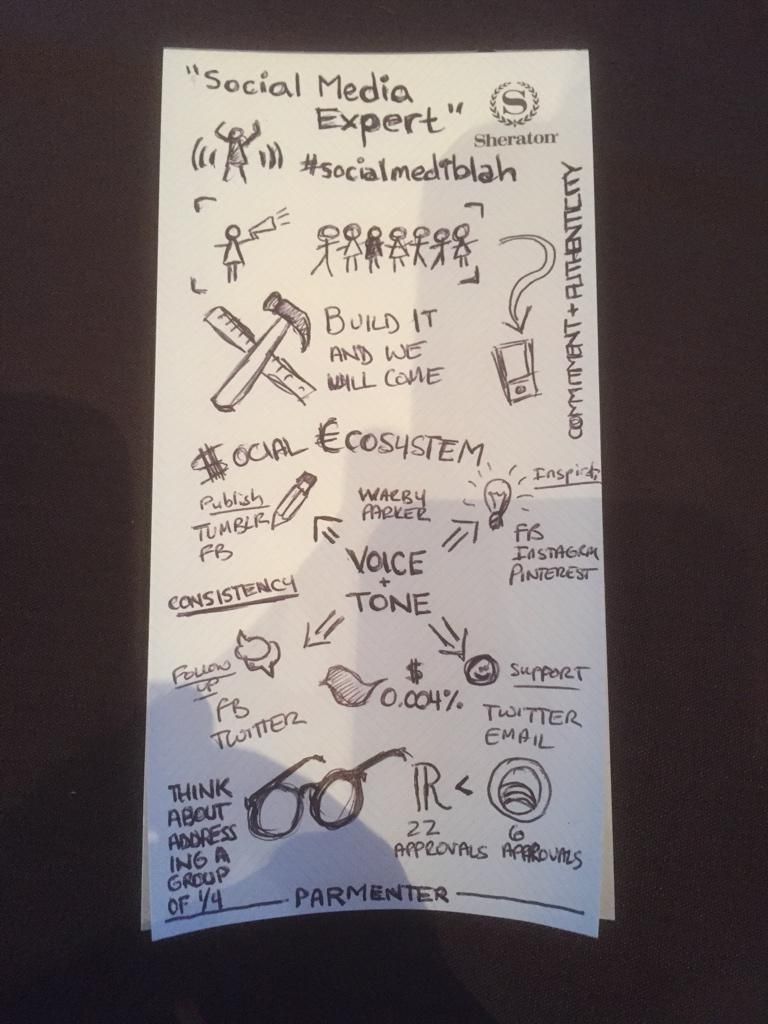 "Social Media
Expert"
S
Sheraton
#socialmediblah
COMMITMENT + AUTHENTICITY
BUILD IT
AND WE
WILL COME
$OCIAL €COSYSTEM
Publish
TUMBLR
FB
WARBY
PARKER
Inspire
FB
INSTAGRM
PINTEREST
VOICE
+
TONE
CONSISTENCY
FOLLOW
UP
FB
TWITTER
$
0.004%
SUPPORT
TWITTER
EMAIL
THINK
ABOUT
ADDRESS
ING A
GROUP
OF 1/4
R <
22
APPROVALS
6
APPROVALS
PARMENTER